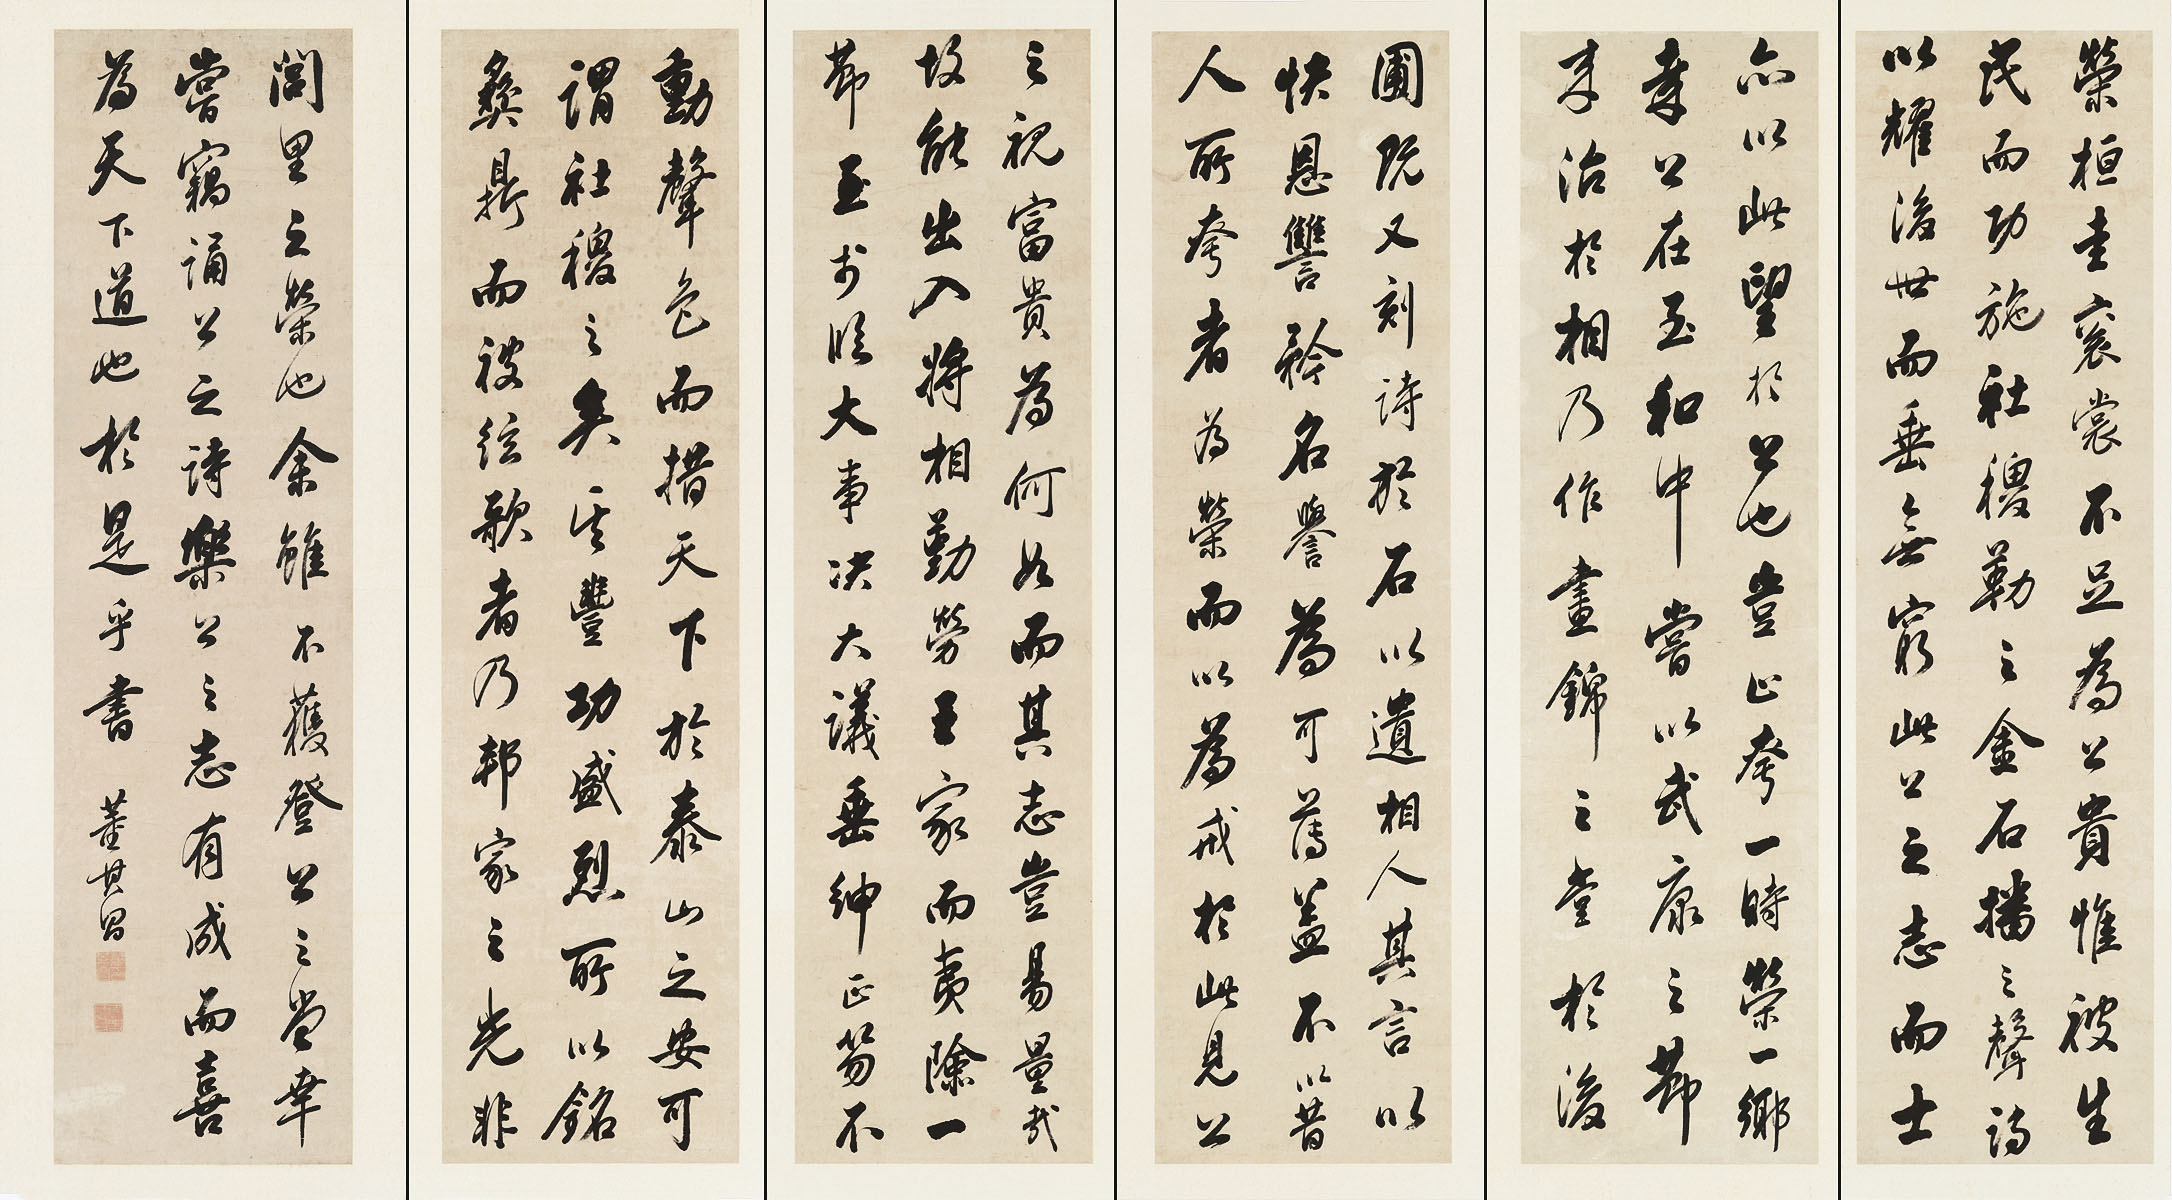 榮桓圭袞裳不足為公貴惟被生
民而功施社稷勒之金石播之聲詩
以耀後世而垂無窮此公之志而士
亦以此望於公也豈止夸一時榮一鄉
哉公在至和中嘗以武康之節
來治於相乃作晝錦之堂於後
圃既又刻詩於石以遺相人其言以
快恩讐矜名譽為可薄蓋不以昔
人所夸者為榮而以為戒於此見公
之視富貴為何如而其志豈易量哉
故能出入將相勤勞王家而夷險一
節至於臨大事決大議垂紳正笏不
動聲色而措天下於泰山之安可
謂社稷之矣其豐功盛烈所以銘
彝鼎而被絃歌者乃邦家之光非
閭里之榮也余雖不獲登公之堂幸
嘗竊誦公之詩樂公之志有成而喜
為天下道也於是乎書 董其昌